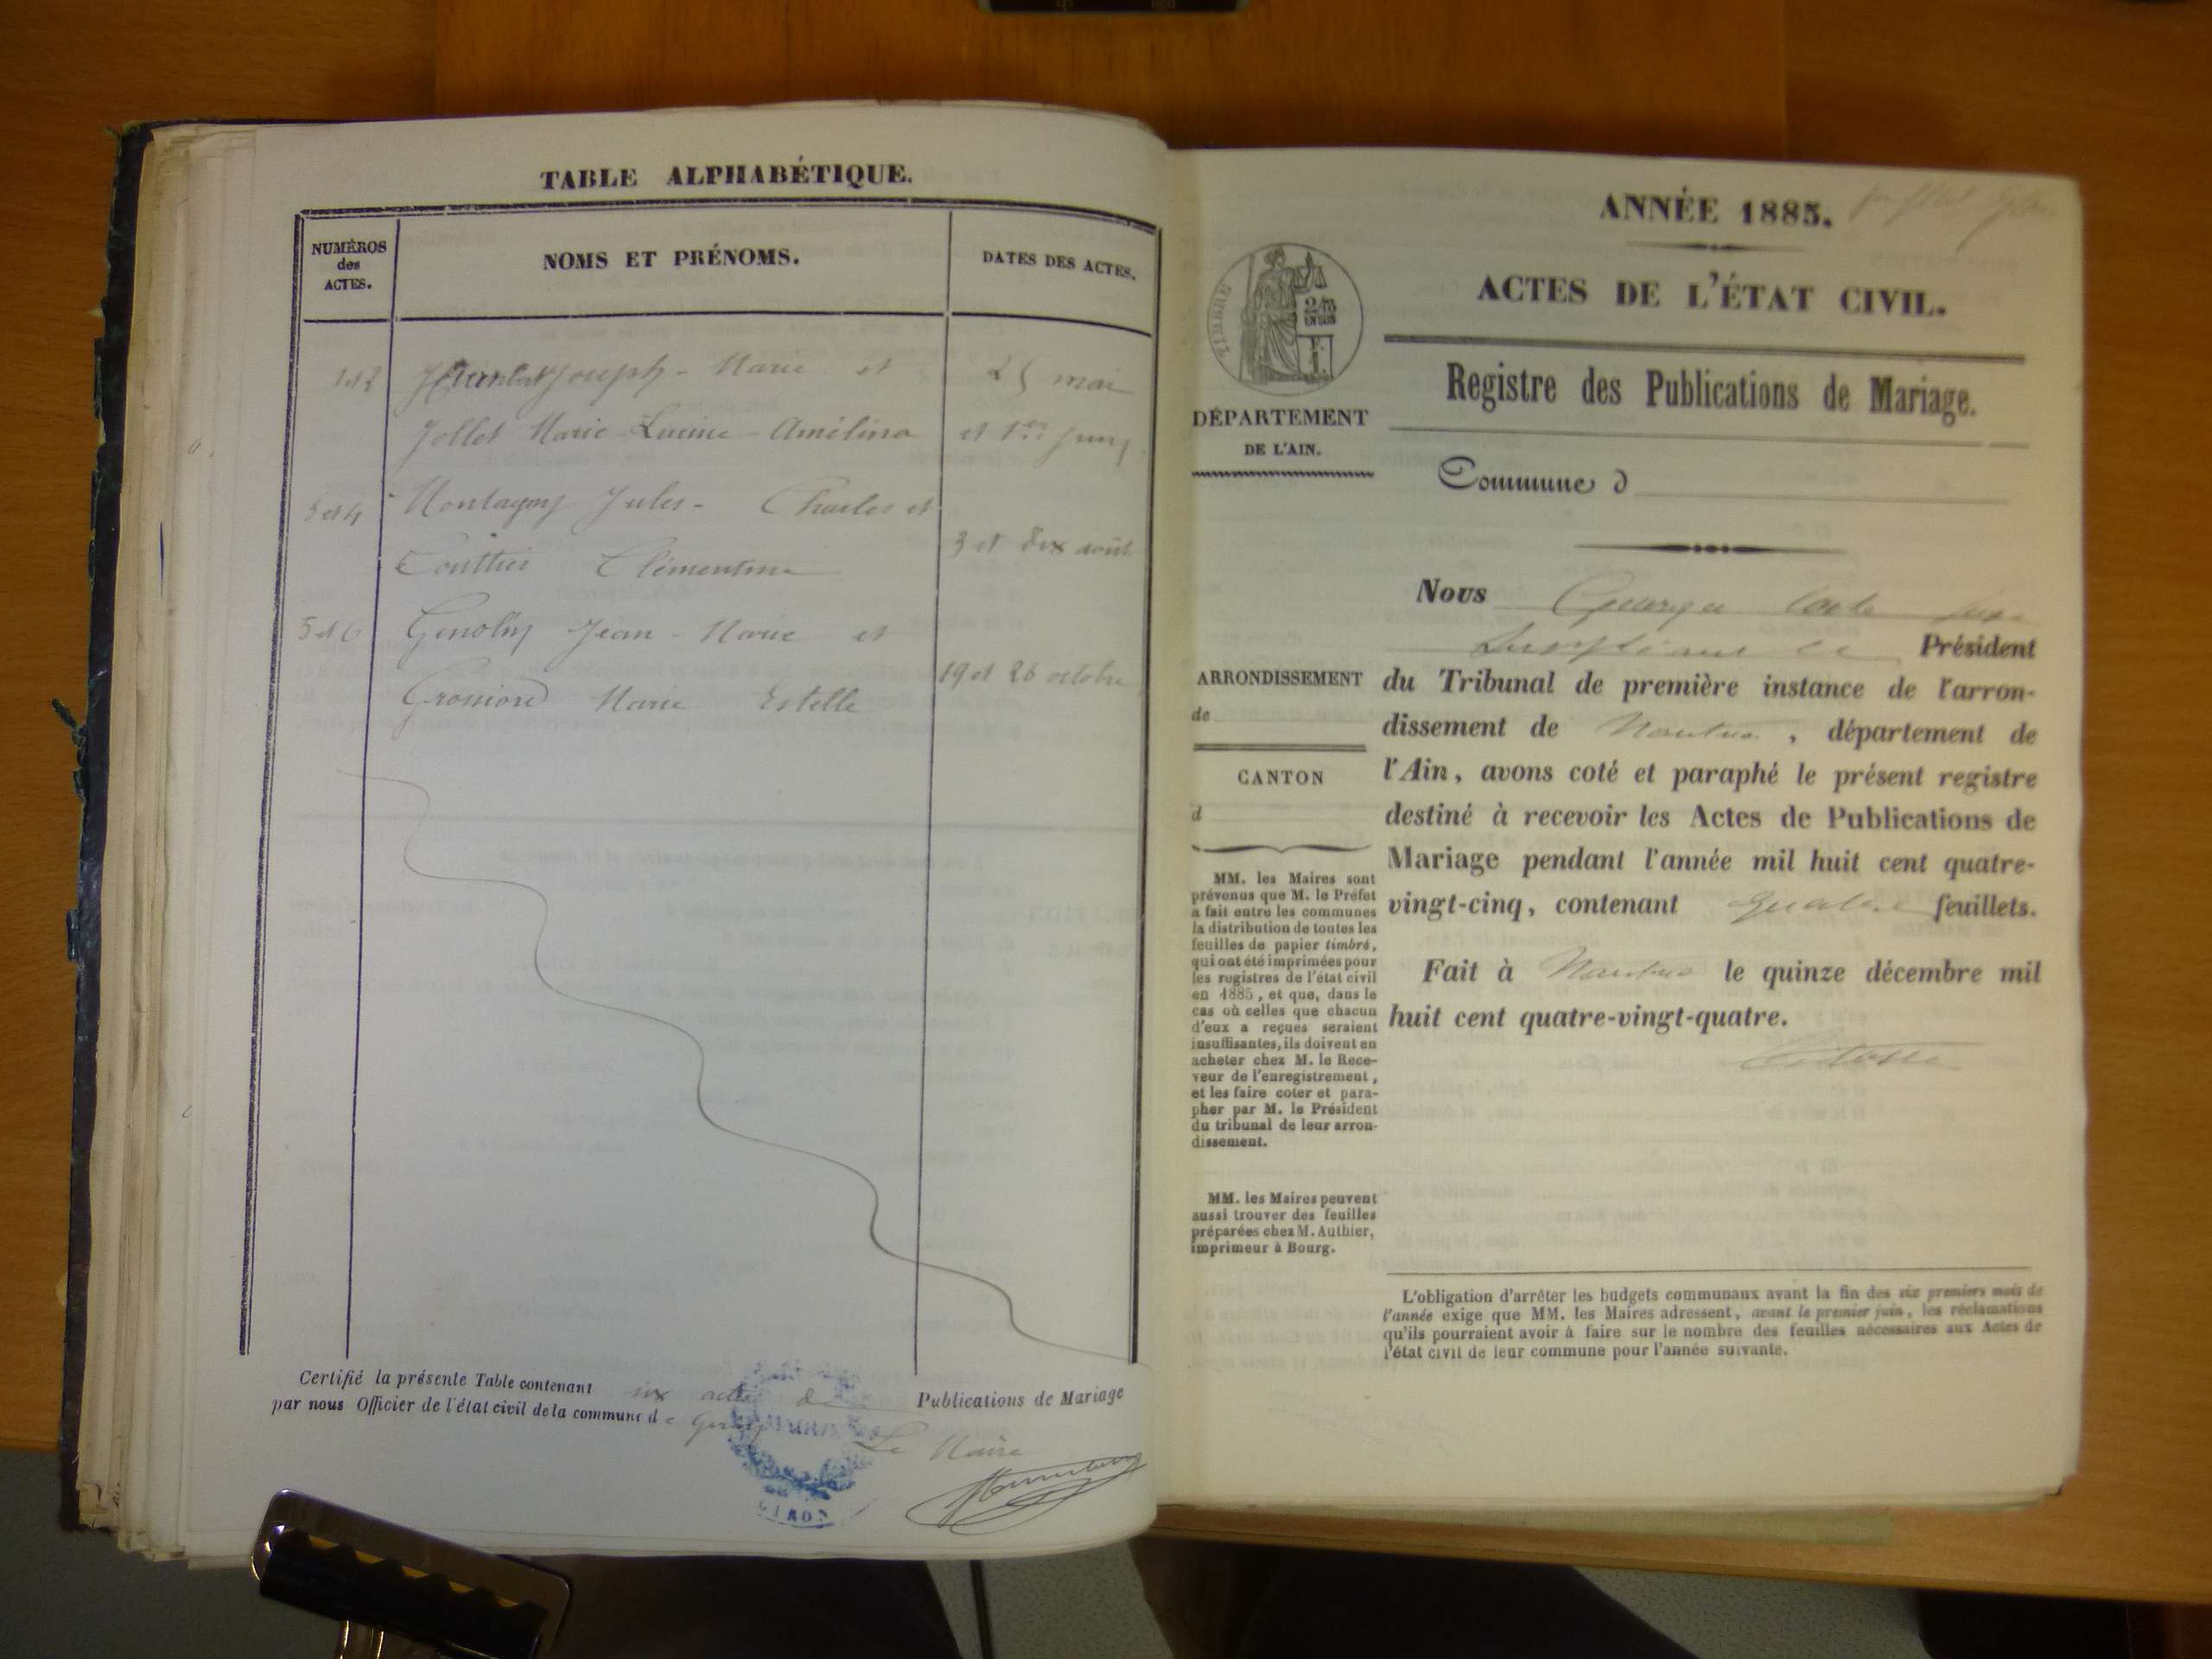 TABLE ALPHABÉTIQUE.
NUMÉROS
des
ACTES.
NOMS ET PRÉNOMS.
DATES DES ACTES.
1 et 2 Joseph - Marie et 25 mai
Jollet Marie - - Amélina et 1er juin
3 et 4 Montagny Jules - Charles et
Clémentine 3 et dix août
5 et 6 Jean - Marie et
Marie Estelle 19 et 26 octobre
Certifié la présente Table contenant six actes de Publications de Mariage
par nous Officier de l'état civil de la commune de
Le Maire
ANNÉE 1885.
ACTES DE L'ÉTAT CIVIL.
Registre des Publications de Mariage.
TIMBRE
DÉPARTEMENT
DE L'AIN.
Commune d
Nous
Président
ARRONDISSEMENT
de
CANTON
d
du Tribunal de première instance de l'arron-
dissement de Nantua, département de
l'Ain, avons coté et paraphé le présent registre
destiné à recevoir les Actes de Publications de
Mariage pendant l'année mil huit cent quatre-
vingt-cinq, contenant quatre feuillets.
Fait à Nantua le quinze décembre mil
huit cent quatre-vingt-quatre.
MM. les Maires sont
prévenus que M. le Préfet
a fait entre les communes
la distribution de toutes les
feuilles de papier timbré,
qui ont été imprimées pour
les registres de l'état civil
en 1885, et que, dans le
cas où celles que chacun
d'eux a reçues seraient
insuffisantes, ils doivent en
acheter chez M. le Rece-
veur de l'enregistrement,
et les faire coter et para-
pher par M. le Président
du tribunal de leur arron-
dissement.
MM. les Maires peuvent
aussi trouver des feuilles
préparées chez M. Authier,
imprimeur à Bourg.
L'obligation d'arrêter les budgets communaux avant la fin des six premiers mois de
l'année exige que MM. les Maires adressent, avant le premier juin, les réclamations
qu'ils pourraient avoir à faire sur le nombre des feuilles nécessaires aux Actes de
l'état civil de leur commune pour l'année suivante.